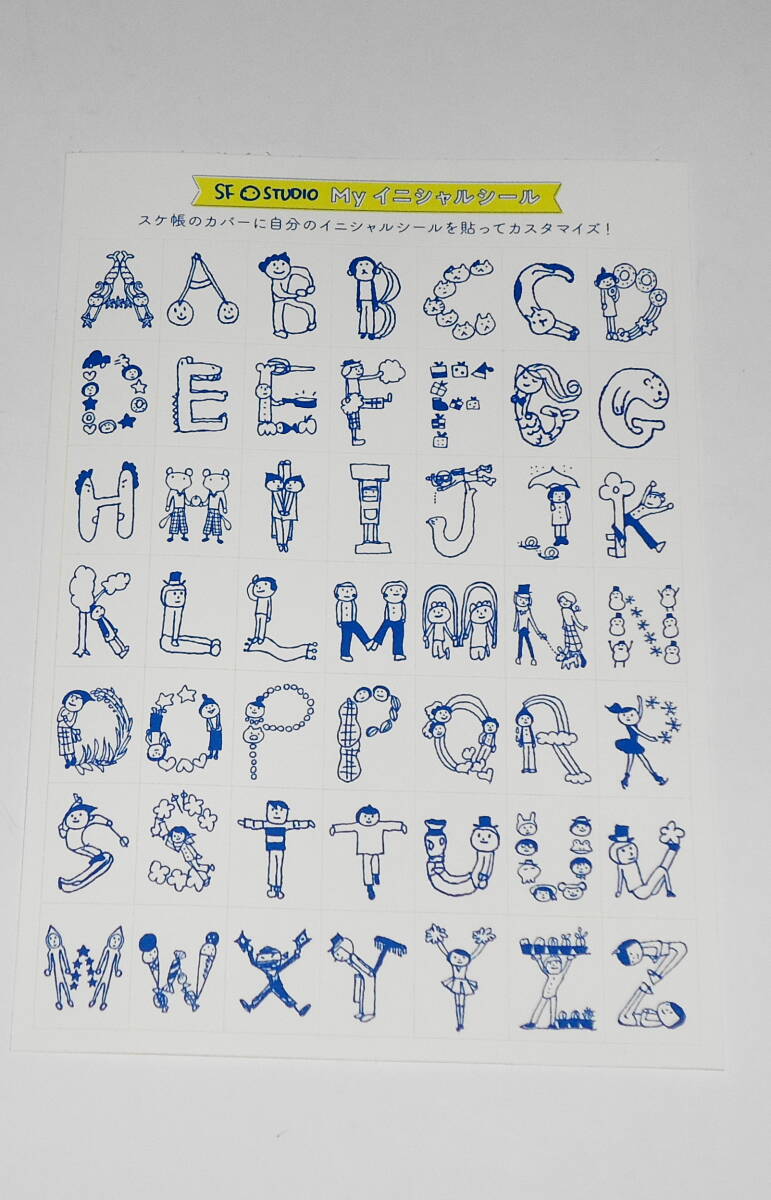 SF STUDIO My イニシャルシール
スケ帳のカバーに自分のイニシャルシールを貼ってカスタマイズ！
A A B B C C D
D E E F F G G
H H I I J J K
K L L M M N N
O O P P Q R R
S S T T U U V
W W X Y Y Z Z